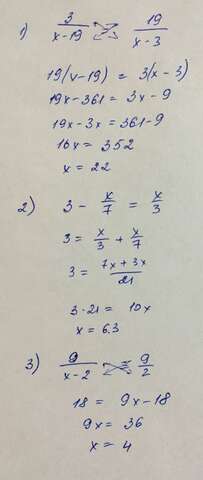 1) 3/(x-19) = 19/(x-3)
19(x-19) = 3(x-3)
19x-361 = 3x-9
19x-3x = 361-9
16x = 352
x = 22
2) 3 - x/7 = x/3
3 = x/3 + x/7
3 = (7x+3x)/21
3·21 = 10x
x = 6.3
3) 9/(x-2) = 9/2
18 = 9x-18
9x = 36
x = 4